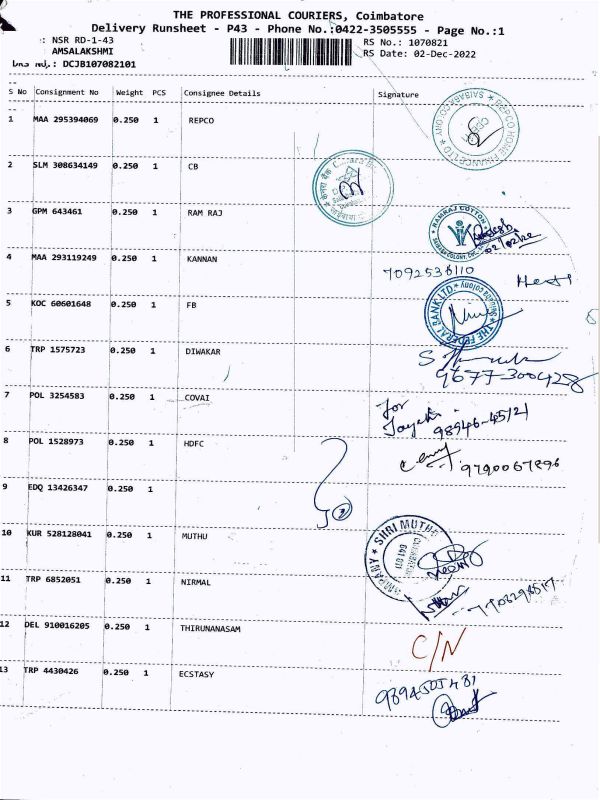 THE PROFESSIONAL COURIERS, Coimbatore
Delivery Runsheet - P43 - Phone No.:0422-3505555 - Page No.:1
: NSR RD-1-43 RS No.: 1070821
AMSALAKSHMI RS Date: 02-Dec-2022
DRS No.: DCJB107082101
S No Consignment No Weight PCS Consignee Details Signature
1 MAA 295394069 0.250 1 REPCO
REPCO HOME FINANCE LTD * SAIBABA COLONY *
2 SLM 308634149 0.250 1 CB
3 GPM 643461 0.250 1 RAM RAJ
RAMRAJ COTTON
02/12/22
4 MAA 293119249 0.250 1 KANNAN 7092536110
5 KOC 60601648 0.250 1 FB
THE FEDERAL BANK LTD * Saibaba Colony *
6 TRP 1575723 0.250 1 DIWAKAR
9677-300428
7 POL 3254583 0.250 1 COVAI for
98946-45121
8 POL 1528973 0.250 1 HDFC
9790067896
9 EDQ 13426347 0.250 1
10 KUR 528128041 0.250 1 MUTHU
SHRI MUTHU
11 TRP 6852051 0.250 1 NIRMAL
12 DEL 910016205 0.250 1 THIRUNANASAM C/N
13 TRP 4430426 0.250 1 ECSTASY